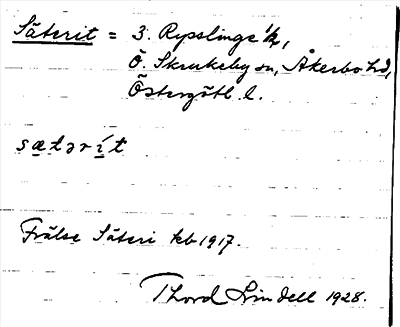 Säterit = 3. Rysslinge 1/2,
Ö. Skrukeby sn, Åkerbo hd,
Östergötl. l.
sætərít
Frälse Säteri kb 1917.
Thord Lindell 1928.